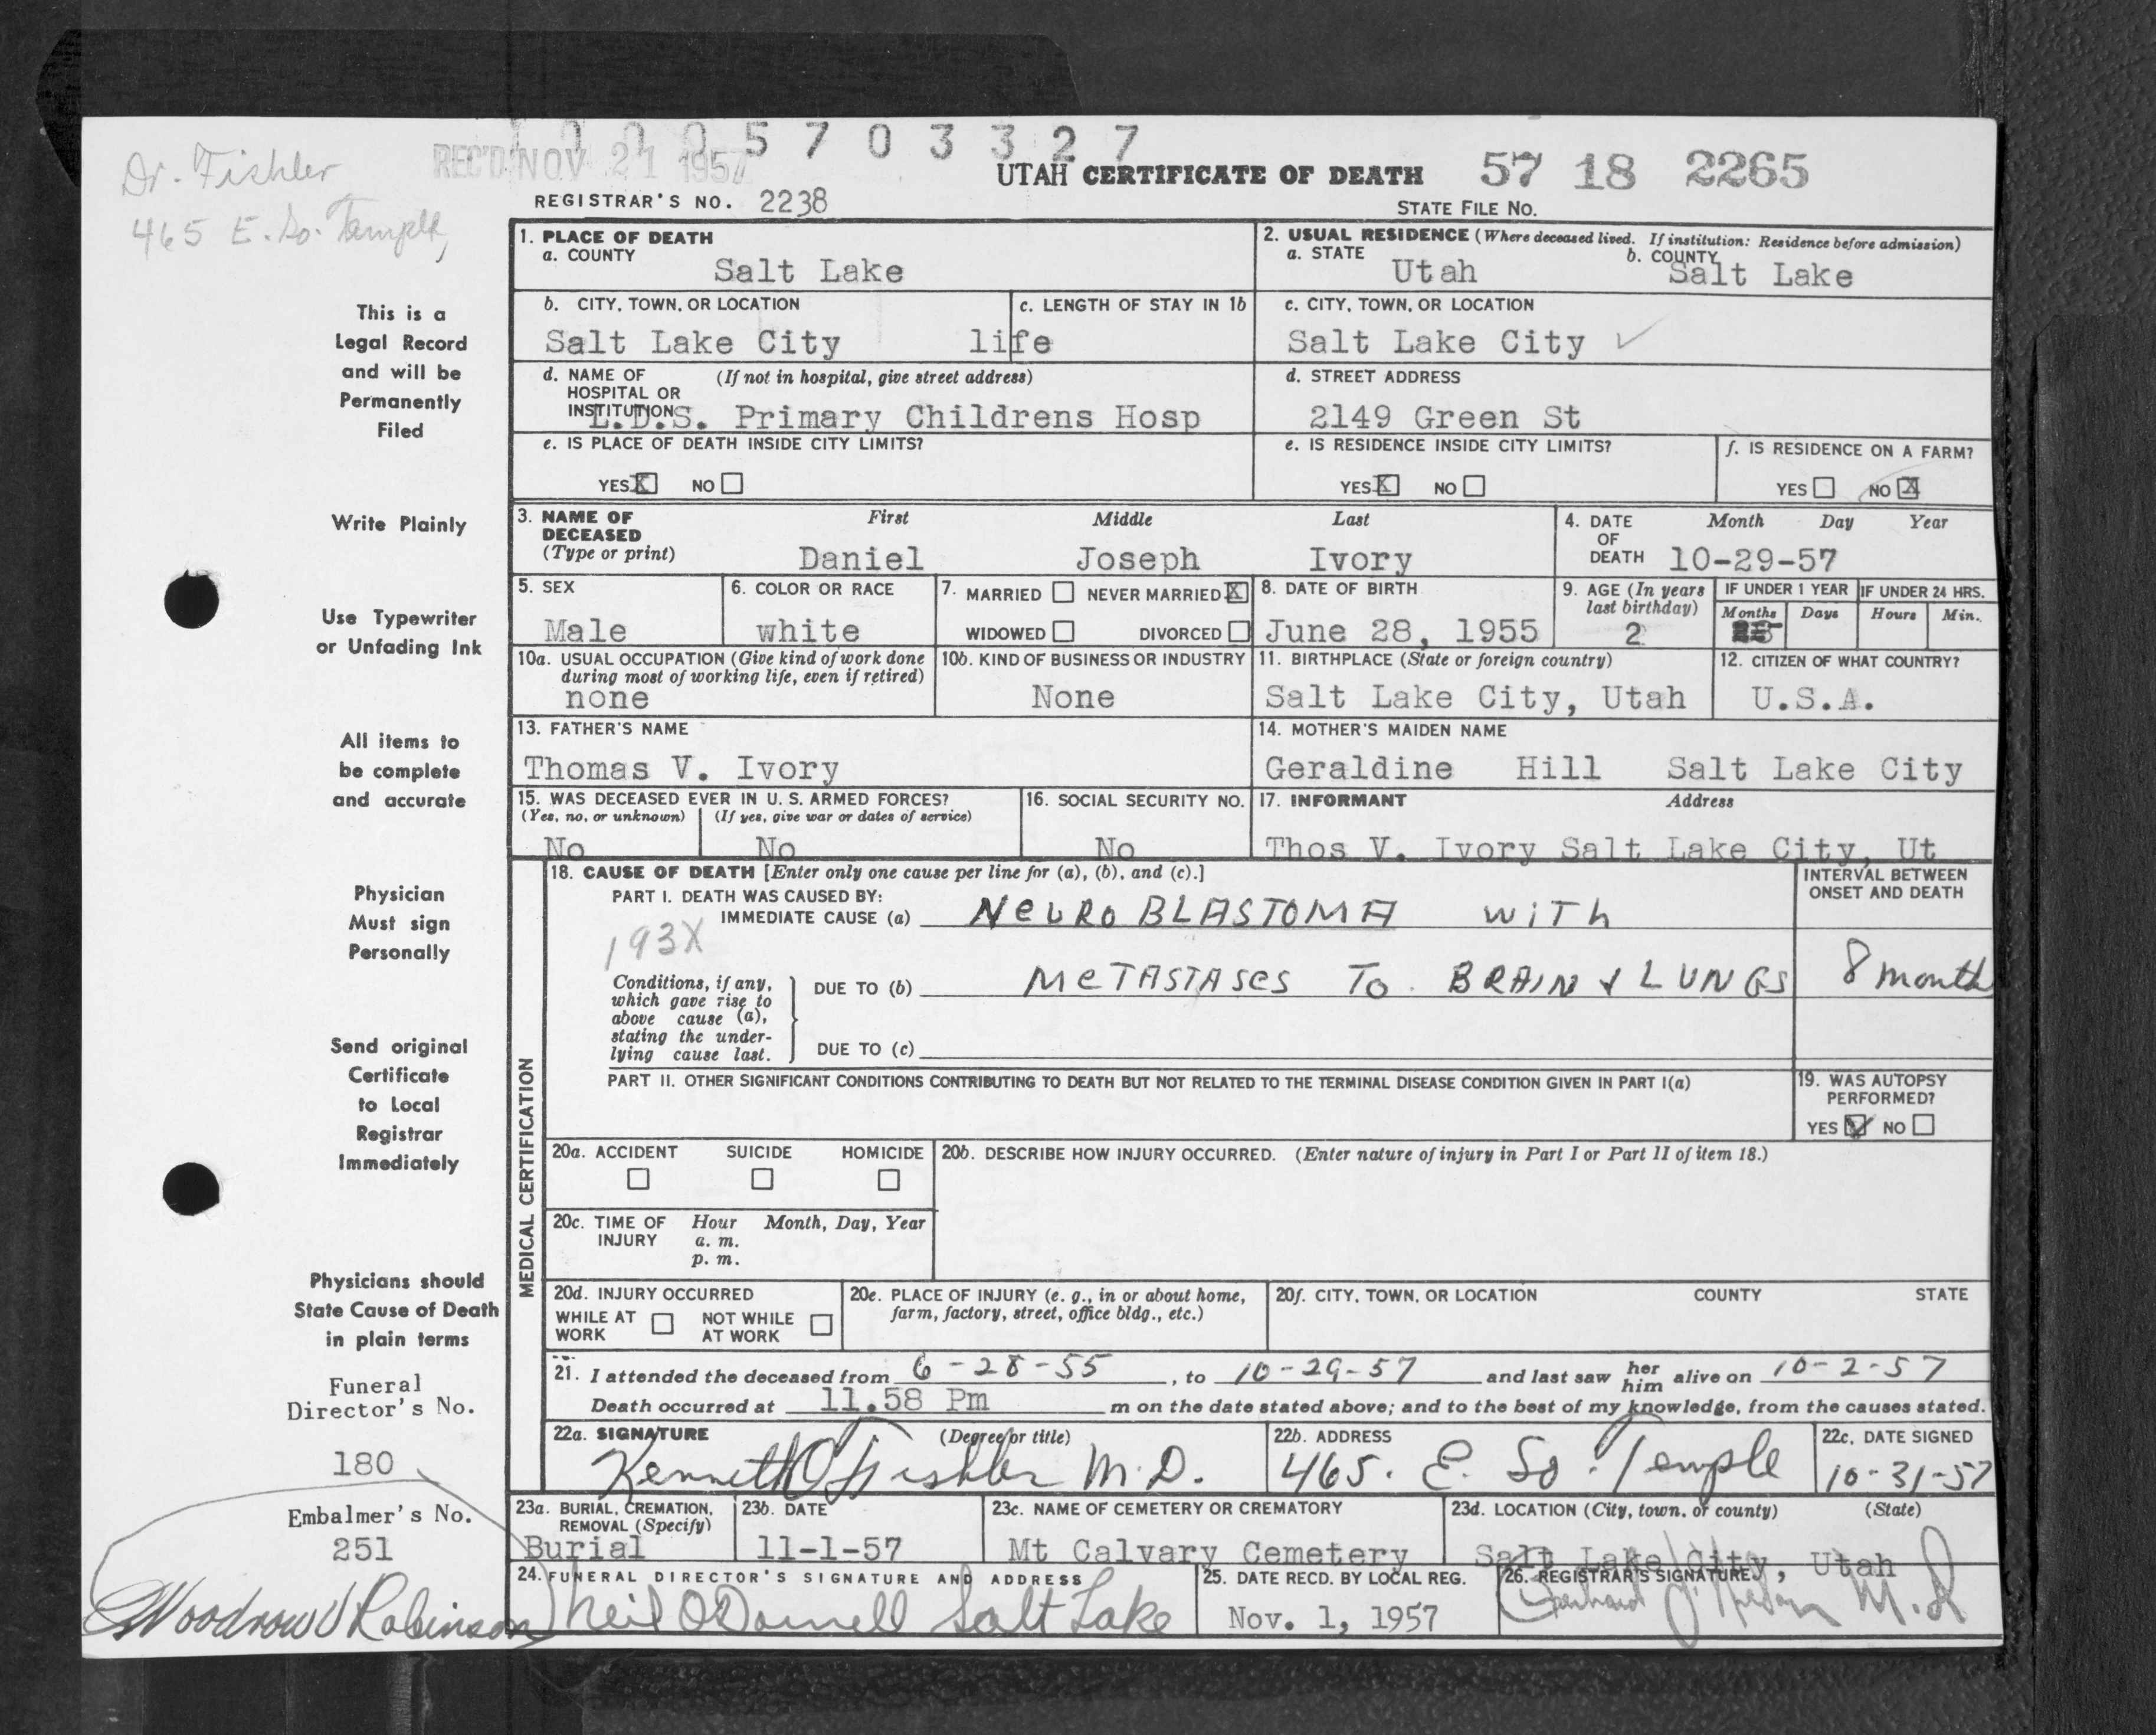 1 0 0 5 7 0 3 3 2 7
Dr. Fishler
465 E. So. Temple,
REC'D NOV 21 1957
UTAH CERTIFICATE OF DEATH 57 18 2265
REGISTRAR'S NO. 2238
STATE FILE NO.
This is a
Legal Record
and will be
Permanently
Filed
Write Plainly
Use Typewriter
or Unfading Ink
All items to
be complete
and accurate
Physician
Must sign
Personally
Send original
Certificate
to Local
Registrar
Immediately
Physicians should
State Cause of Death
in plain terms
Funeral
Director's No.
180
Embalmer's No.
251
Woodrow J Robinson
1. PLACE OF DEATH
a. COUNTY
Salt Lake
2. USUAL RESIDENCE (Where deceased lived. If institution: Residence before admission)
a. STATE b. COUNTY
Utah Salt Lake
b. CITY, TOWN, OR LOCATION c. LENGTH OF STAY IN 1b
Salt Lake City life
c. CITY, TOWN, OR LOCATION
Salt Lake City ✓
d. NAME OF (If not in hospital, give street address)
HOSPITAL OR
INSTITUTION L.D.S. Primary Childrens Hosp
d. STREET ADDRESS
2149 Green St
e. IS PLACE OF DEATH INSIDE CITY LIMITS?
YES X NO
e. IS RESIDENCE INSIDE CITY LIMITS?
YES X NO
f. IS RESIDENCE ON A FARM?
YES NO X
3. NAME OF DECEASED (Type or print) First Middle Last
Daniel Joseph Ivory
4. DATE OF DEATH Month Day Year
10-29-57
5. SEX
Male
6. COLOR OR RACE
white
7. MARRIED NEVER MARRIED X
WIDOWED DIVORCED
8. DATE OF BIRTH
June 28, 1955
9. AGE (In years last birthday)
2
IF UNDER 1 YEAR IF UNDER 24 HRS.
Months Days Hours Min.
10a. USUAL OCCUPATION (Give kind of work done
during most of working life, even if retired)
none
10b. KIND OF BUSINESS OR INDUSTRY
None
11. BIRTHPLACE (State or foreign country)
Salt Lake City, Utah
12. CITIZEN OF WHAT COUNTRY?
U.S.A.
13. FATHER'S NAME
Thomas V. Ivory
14. MOTHER'S MAIDEN NAME
Geraldine Hill Salt Lake City
15. WAS DECEASED EVER IN U. S. ARMED FORCES?
(Yes, no, or unknown) (If yes, give war or dates of service)
No No
16. SOCIAL SECURITY NO.
No
17. INFORMANT Address
Thos V. Ivory Salt Lake City, Ut
MEDICAL CERTIFICATION
18. CAUSE OF DEATH [Enter only one cause per line for (a), (b), and (c).]
INTERVAL BETWEEN
ONSET AND DEATH
PART I. DEATH WAS CAUSED BY:
IMMEDIATE CAUSE (a) NEURO BLASTOMA WITH
193X
Conditions, if any,
which gave rise to
above cause (a),
stating the under-
lying cause last.
DUE TO (b) METASTASES TO BRAIN & LUNGS 8 month
DUE TO (c)
PART II. OTHER SIGNIFICANT CONDITIONS CONTRIBUTING TO DEATH BUT NOT RELATED TO THE TERMINAL DISEASE CONDITION GIVEN IN PART I(a)
19. WAS AUTOPSY
PERFORMED?
YES ✓ NO
20a. ACCIDENT SUICIDE HOMICIDE
20b. DESCRIBE HOW INJURY OCCURRED. (Enter nature of injury in Part I or Part II of item 18.)
20c. TIME OF INJURY Hour Month, Day, Year
a. m.
p. m.
20d. INJURY OCCURRED
WHILE AT WORK NOT WHILE AT WORK
20e. PLACE OF INJURY (e. g., in or about home,
farm, factory, street, office bldg., etc.)
20f. CITY, TOWN, OR LOCATION COUNTY STATE
21. I attended the deceased from 6-28-55, to 10-29-57 and last saw her him alive on 10-2-57
Death occurred at 11.58 Pm m on the date stated above; and to the best of my knowledge, from the causes stated.
22a. SIGNATURE (Degree or title)
Kenneth O Fishler M.D.
22b. ADDRESS
465. E. So. Temple
22c. DATE SIGNED
10-31-57
23a. BURIAL, CREMATION,
REMOVAL (Specify)
Burial
23b. DATE
11-1-57
23c. NAME OF CEMETERY OR CREMATORY
Mt Calvary Cemetery
23d. LOCATION (City, town, or county) (State)
Salt Lake City, Utah
24. FUNERAL DIRECTOR'S SIGNATURE AND ADDRESS
Neil O'Donnell Salt Lake
25. DATE RECD. BY LOCAL REG.
Nov. 1, 1957
26. REGISTRAR'S SIGNATURE
M.D.